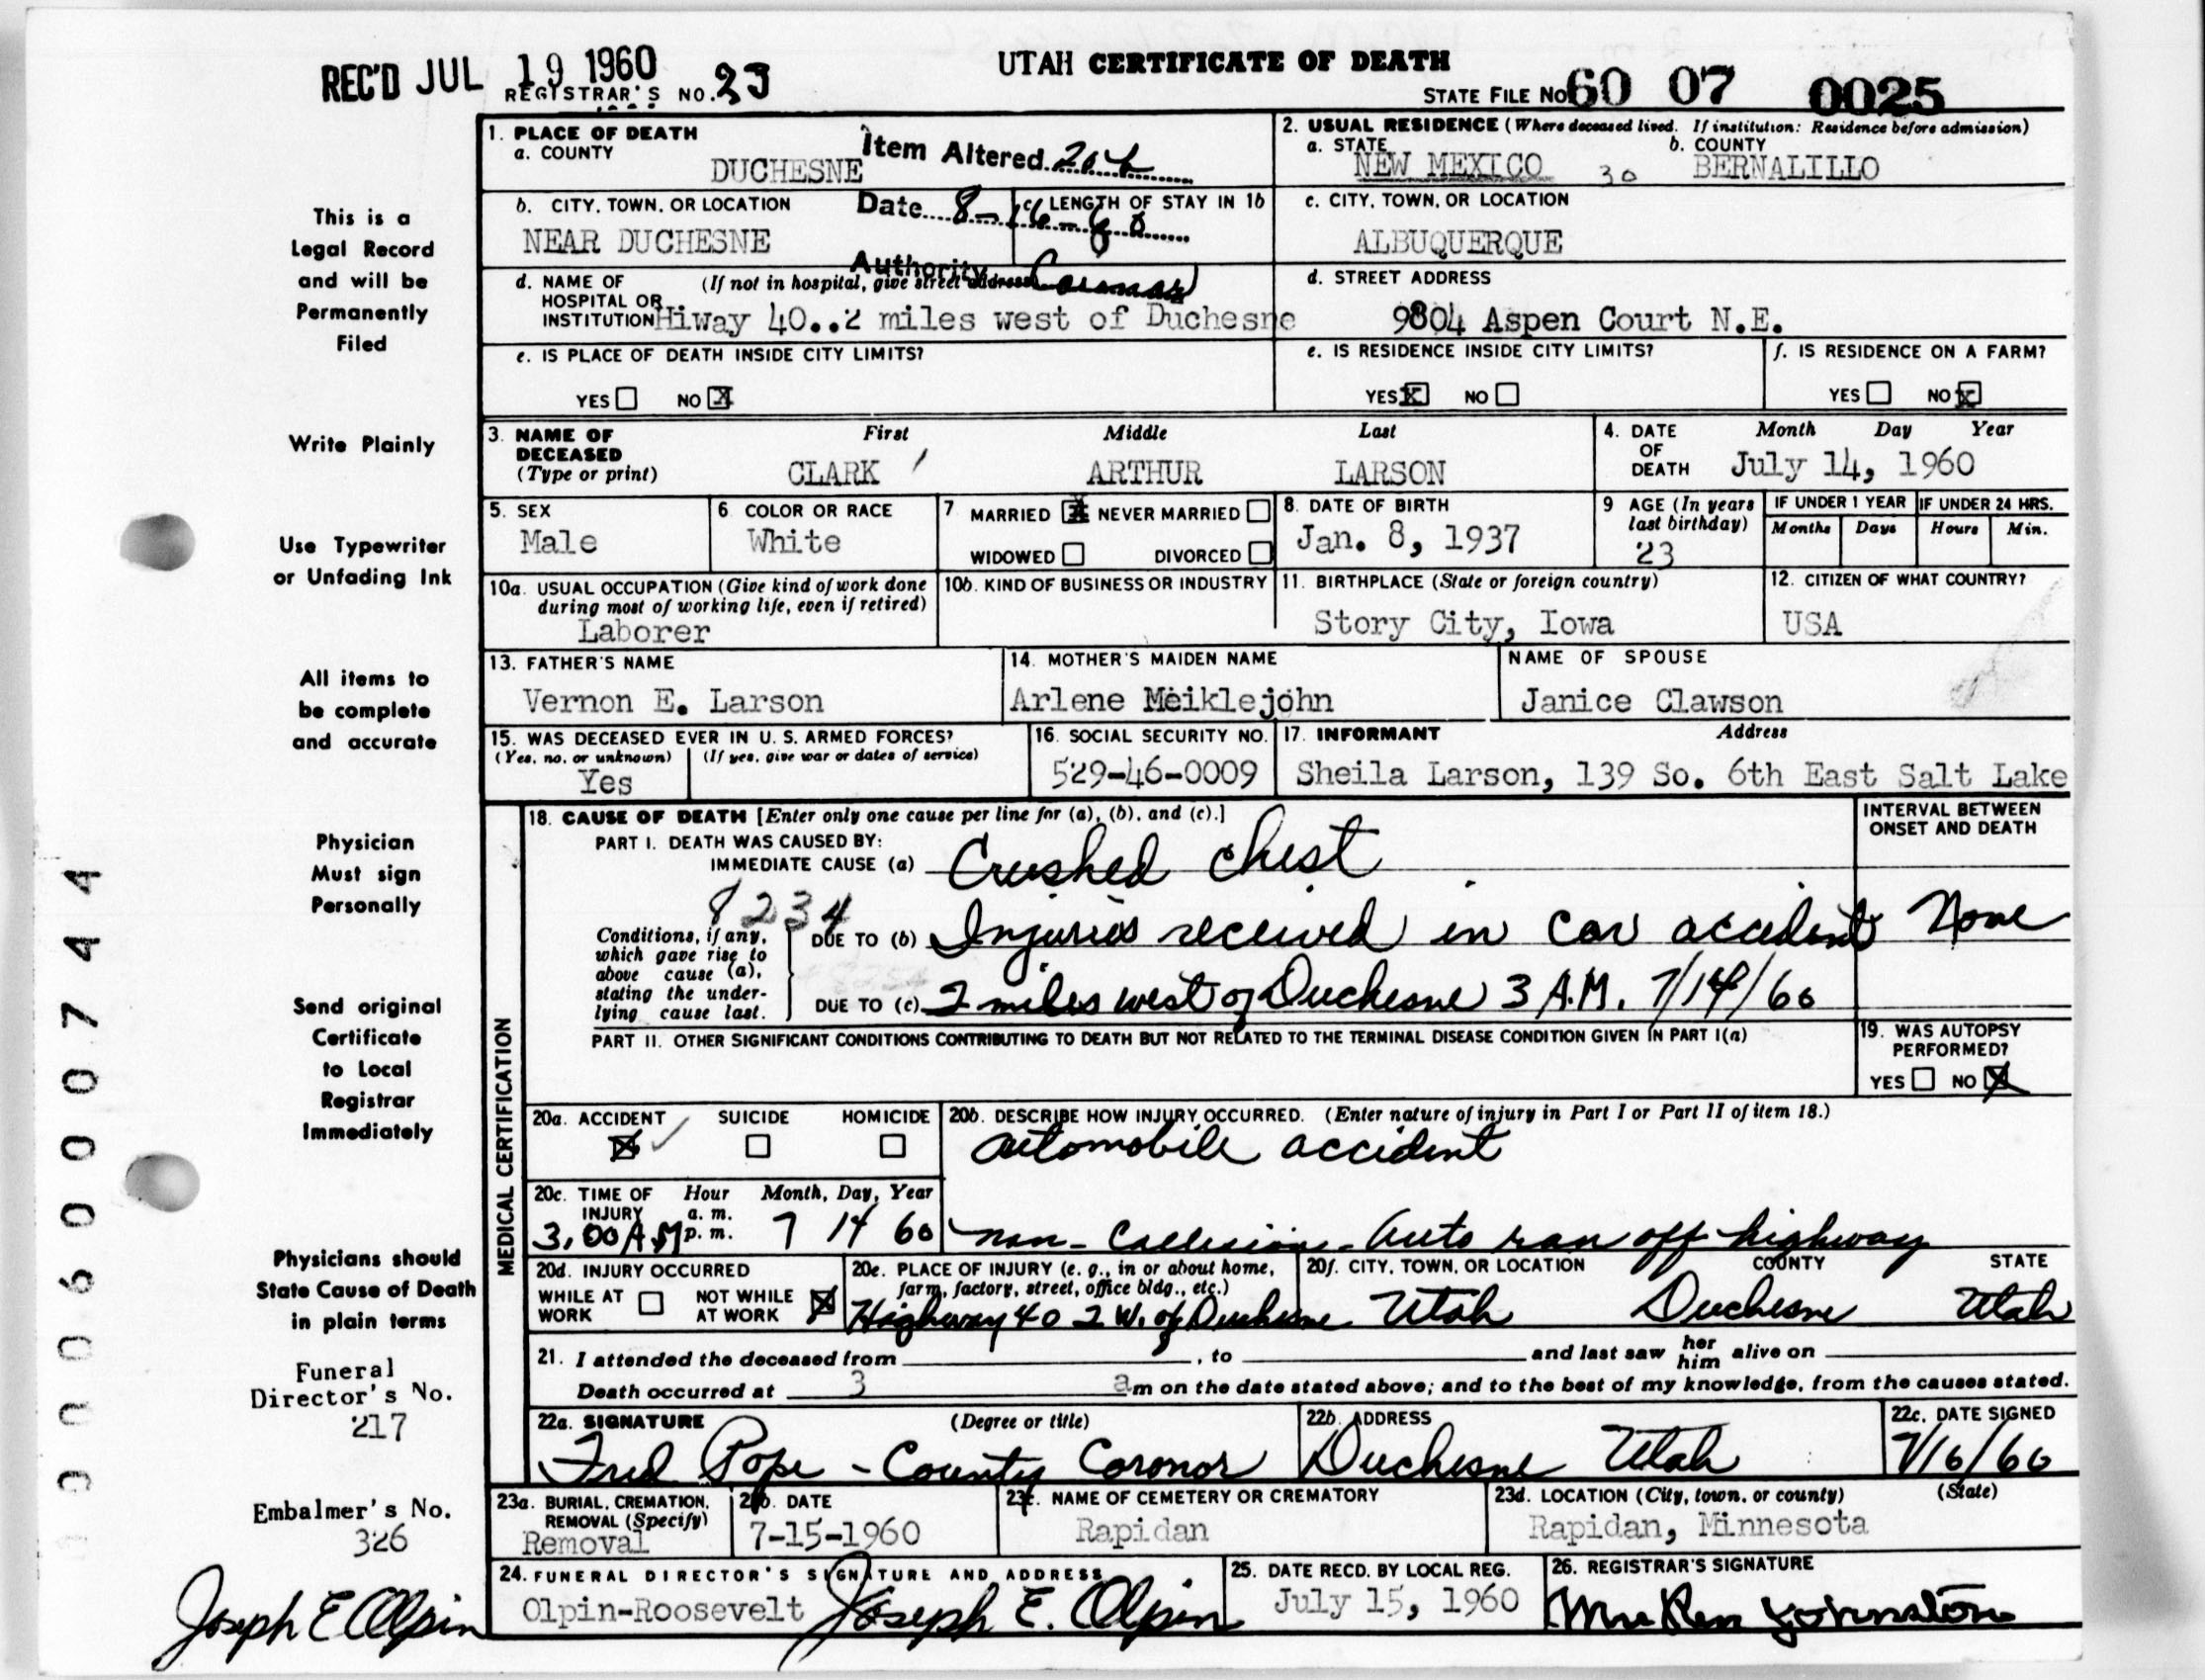 REC'D JUL 19 1960
REGISTRAR'S NO. 23
UTAH CERTIFICATE OF DEATH
STATE FILE NO. 60 07 0025
This is a
Legal Record
and will be
Permanently
Filed
Write Plainly
Use Typewriter
or Unfading Ink
All items to
be complete
and accurate
Physician
Must sign
Personally
Send original
Certificate
to Local
Registrar
Immediately
Physicians should
State Cause of Death
in plain terms
Funeral
Director's No.
217
Embalmer's No.
326
Joseph E Olpin
1. PLACE OF DEATH
a. COUNTY
DUCHESNE
Item Altered
Date 8-16-60
Authority Coronor
b. CITY, TOWN, OR LOCATION
NEAR DUCHESNE
c. LENGTH OF STAY IN 1b
d. NAME OF HOSPITAL OR INSTITUTION (If not in hospital, give street address)
Hiway 40..2 miles west of Duchesne
e. IS PLACE OF DEATH INSIDE CITY LIMITS?
YES NO X
2. USUAL RESIDENCE (Where deceased lived. If institution: Residence before admission)
a. STATE
NEW MEXICO 30
b. COUNTY
BERNALILLO
c. CITY, TOWN, OR LOCATION
ALBUQUERQUE
d. STREET ADDRESS
9804 Aspen Court N.E.
e. IS RESIDENCE INSIDE CITY LIMITS?
YES X NO
f. IS RESIDENCE ON A FARM?
YES NO X
3. NAME OF DECEASED (Type or print)
First Middle Last
CLARK ARTHUR LARSON
4. DATE OF DEATH Month Day Year
July 14, 1960
5. SEX
Male
6. COLOR OR RACE
White
7 MARRIED X NEVER MARRIED
WIDOWED DIVORCED
8. DATE OF BIRTH
Jan. 8, 1937
9 AGE (In years last birthday)
23
IF UNDER 1 YEAR IF UNDER 24 HRS.
Months Days Hours Min.
10a. USUAL OCCUPATION (Give kind of work done during most of working life, even if retired)
Laborer
10b. KIND OF BUSINESS OR INDUSTRY
11. BIRTHPLACE (State or foreign country)
Story City, Iowa
12. CITIZEN OF WHAT COUNTRY?
USA
13. FATHER'S NAME
Vernon E. Larson
14. MOTHER'S MAIDEN NAME
Arlene Meiklejohn
NAME OF SPOUSE
Janice Clawson
15. WAS DECEASED EVER IN U.S. ARMED FORCES?
(Yes, no, or unknown) (If yes, give war or dates of service)
Yes
16. SOCIAL SECURITY NO.
529-46-0009
17. INFORMANT Address
Sheila Larson, 139 So. 6th East Salt Lake
MEDICAL CERTIFICATION
18. CAUSE OF DEATH [Enter only one cause per line for (a), (b), and (c).]
INTERVAL BETWEEN ONSET AND DEATH
PART I. DEATH WAS CAUSED BY:
IMMEDIATE CAUSE (a) Crushed chest
8234
Conditions, if any, which gave rise to above cause (a), stating the underlying cause last.
DUE TO (b) Injuries received in car accident None
DUE TO (c) 2 miles west of Duchesne 3 A.M. 7/14/60
PART II. OTHER SIGNIFICANT CONDITIONS CONTRIBUTING TO DEATH BUT NOT RELATED TO THE TERMINAL DISEASE CONDITION GIVEN IN PART I(a)
19. WAS AUTOPSY PERFORMED?
YES NO X
20a. ACCIDENT SUICIDE HOMICIDE
X
20b. DESCRIBE HOW INJURY OCCURRED. (Enter nature of injury in Part I or Part II of item 18.)
automobile accident
non-Collision-Auto ran off highway
20c. TIME OF INJURY Hour a.m. p.m. Month, Day, Year
3:00 A.M 7 14 60
20d. INJURY OCCURRED
WHILE AT WORK NOT WHILE AT WORK X
20e. PLACE OF INJURY (e. g., in or about home, farm, factory, street, office bldg., etc.)
Highway 40 2 W. of Duchesne
20f. CITY, TOWN, OR LOCATION COUNTY STATE
Utah Duchesne Utah
21. I attended the deceased from , to and last saw her him alive on
Death occurred at 3 am on the date stated above; and to the best of my knowledge, from the causes stated.
22a. SIGNATURE (Degree or title)
Fred Pope - County Coronor
22b. ADDRESS
Duchesne Utah
22c. DATE SIGNED
7/16/60
23a. BURIAL, CREMATION, REMOVAL (Specify)
Removal
23b. DATE
7-15-1960
23c. NAME OF CEMETERY OR CREMATORY
Rapidan
23d. LOCATION (City, town, or county) (State)
Rapidan, Minnesota
24. FUNERAL DIRECTOR'S SIGNATURE AND ADDRESS
Olpin-Roosevelt Joseph E. Olpin
25. DATE RECD. BY LOCAL REG.
July 15, 1960
26. REGISTRAR'S SIGNATURE
Johnston